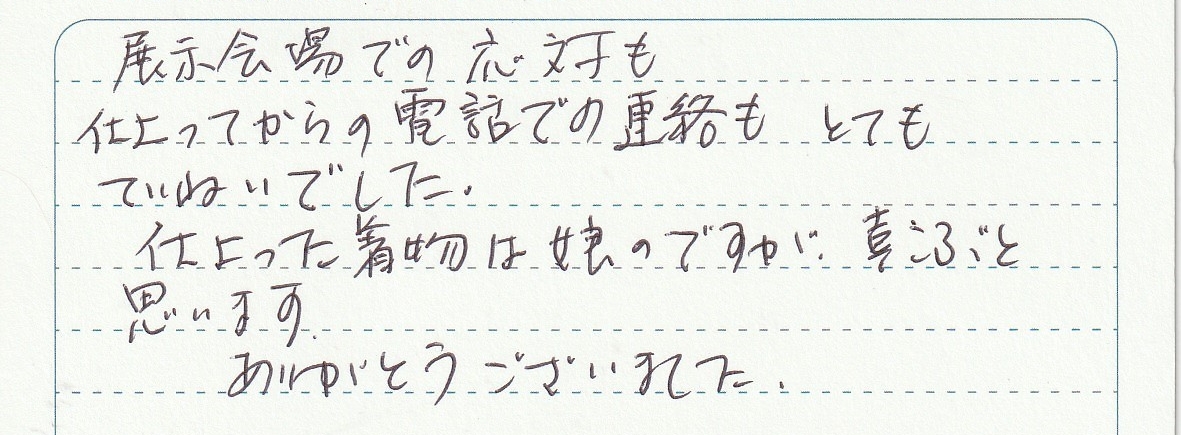 展示会場での応対も
仕上ってからの電話での連絡も とても
ていねいでした。
仕上った着物は娘のですが、喜ぶと
思います。
ありがとうございました。